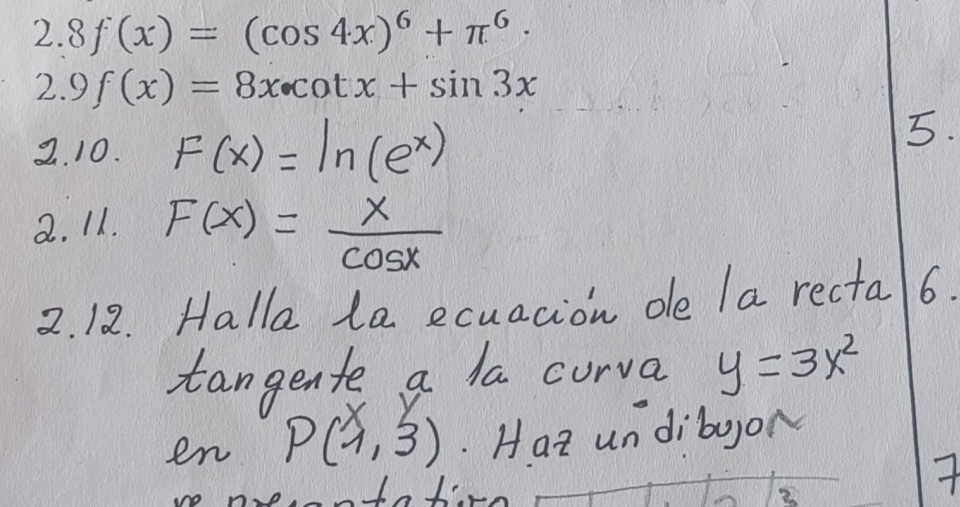 2.8f(x) = (cos 4x)⁶ + π⁶.
2.9f(x) = 8x•cot x + sin 3x
2.10. F(x) = ln(eˣ)
5.
2.11. F(x) = x/cosx
2.12. Halla la ecuación de la recta
6.
tangente a la curva y=3x²
x y
en P(1,3). Haz un dibujo
7
representativo
3